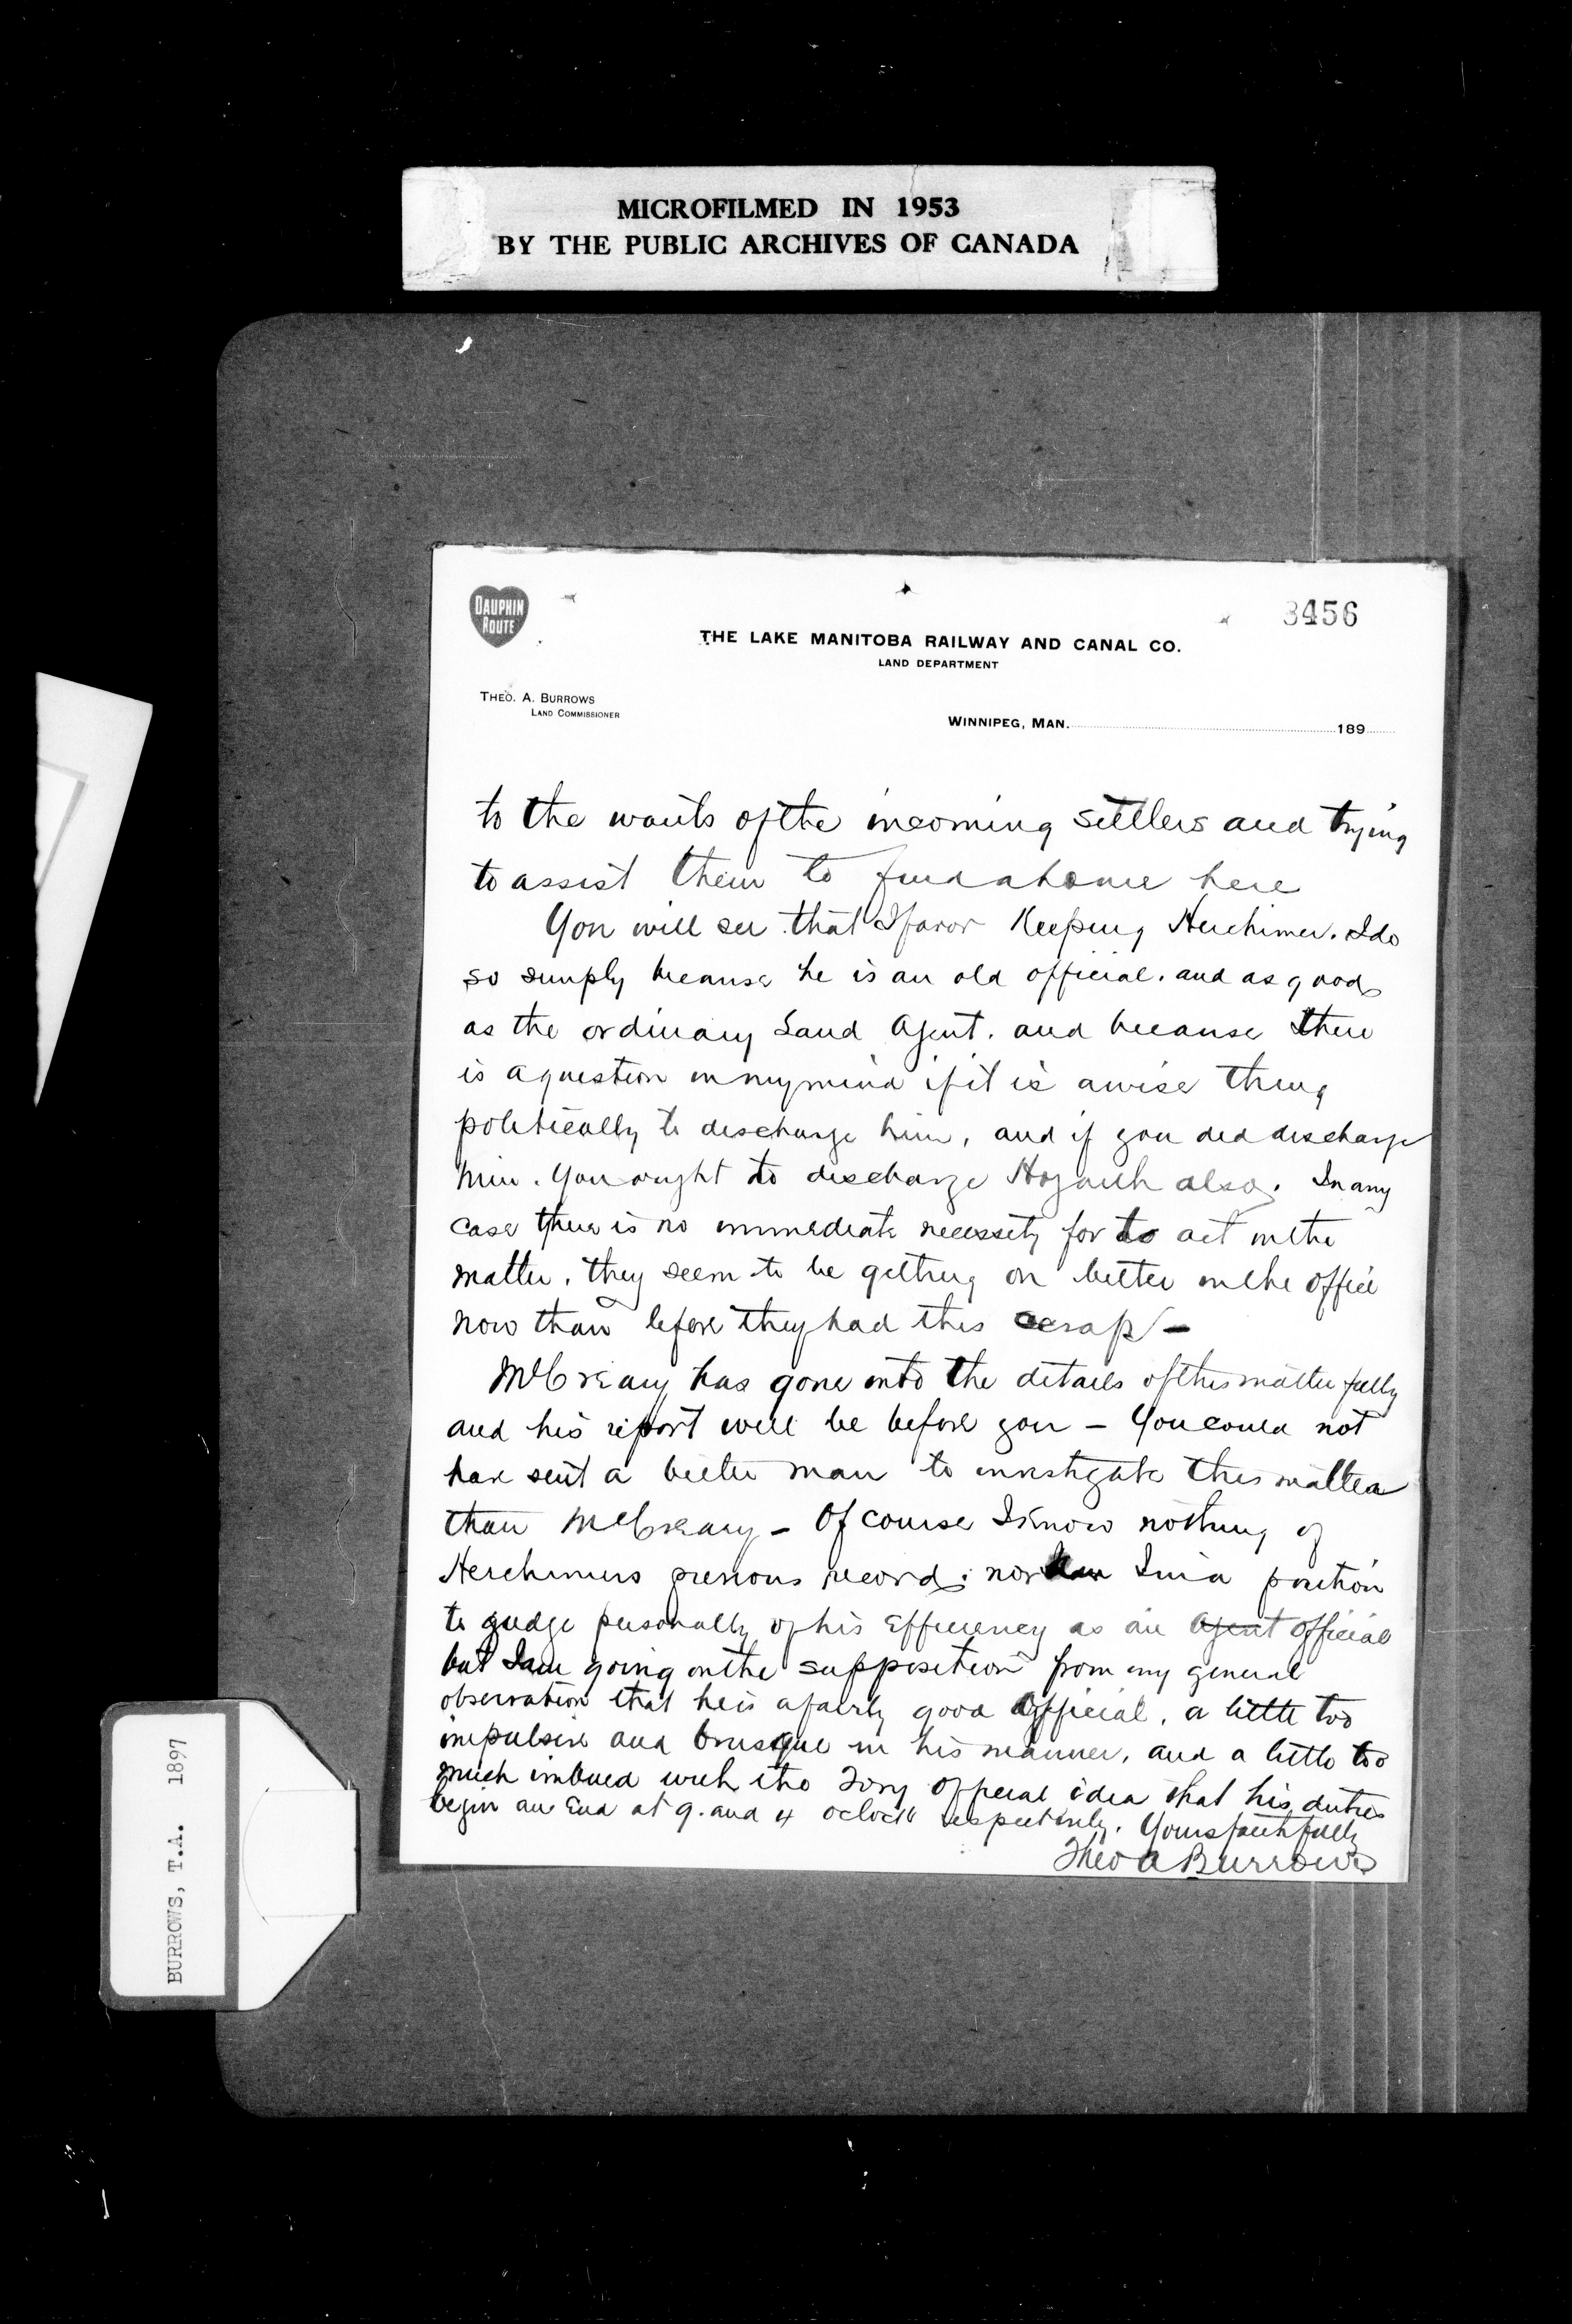 MICROFILMED IN 1953
BY THE PUBLIC ARCHIVES OF CANADA
DAUPHIN
ROUTE
3456
THE LAKE MANITOBA RAILWAY AND CANAL CO.
LAND DEPARTMENT
THEO. A. BURROWS
LAND COMMISSIONER
WINNIPEG, MAN. 189
to the wants of the incoming settlers and trying
to assist them to find a home here
You will see that I favor Keeping Herchimer. I do
so simply because he is an old official. and as good
as the ordinary Land Agent. and because there
is a question in my mind if it is a wise thing
politically to discharge him, and if you did discharge
him. You ought to discharge also. In any
case there is no immediate necessity for to act in the
matter. they seem to be getting on better in the office
now than before they had this scrap —
McCreary has gone into the details of this matter fully
and his report will be before you — You could not
have sent a better man to investigate this matter
than McCreary — Of course I know nothing of
Herchimers previous record; nor am I in a position
to judge personally of his Efficiency as an Agent official
but I am going on the supposition from my general
observation that he is a fairly good official, a little too
impulsive and brusque in his manner, and a little too
much imbued with the Tory official idea that his duties
begin an End at 9. and 4 oclock respectively. Yours faithfully
Theo A Burrows
BURROWS, T.A. 1897